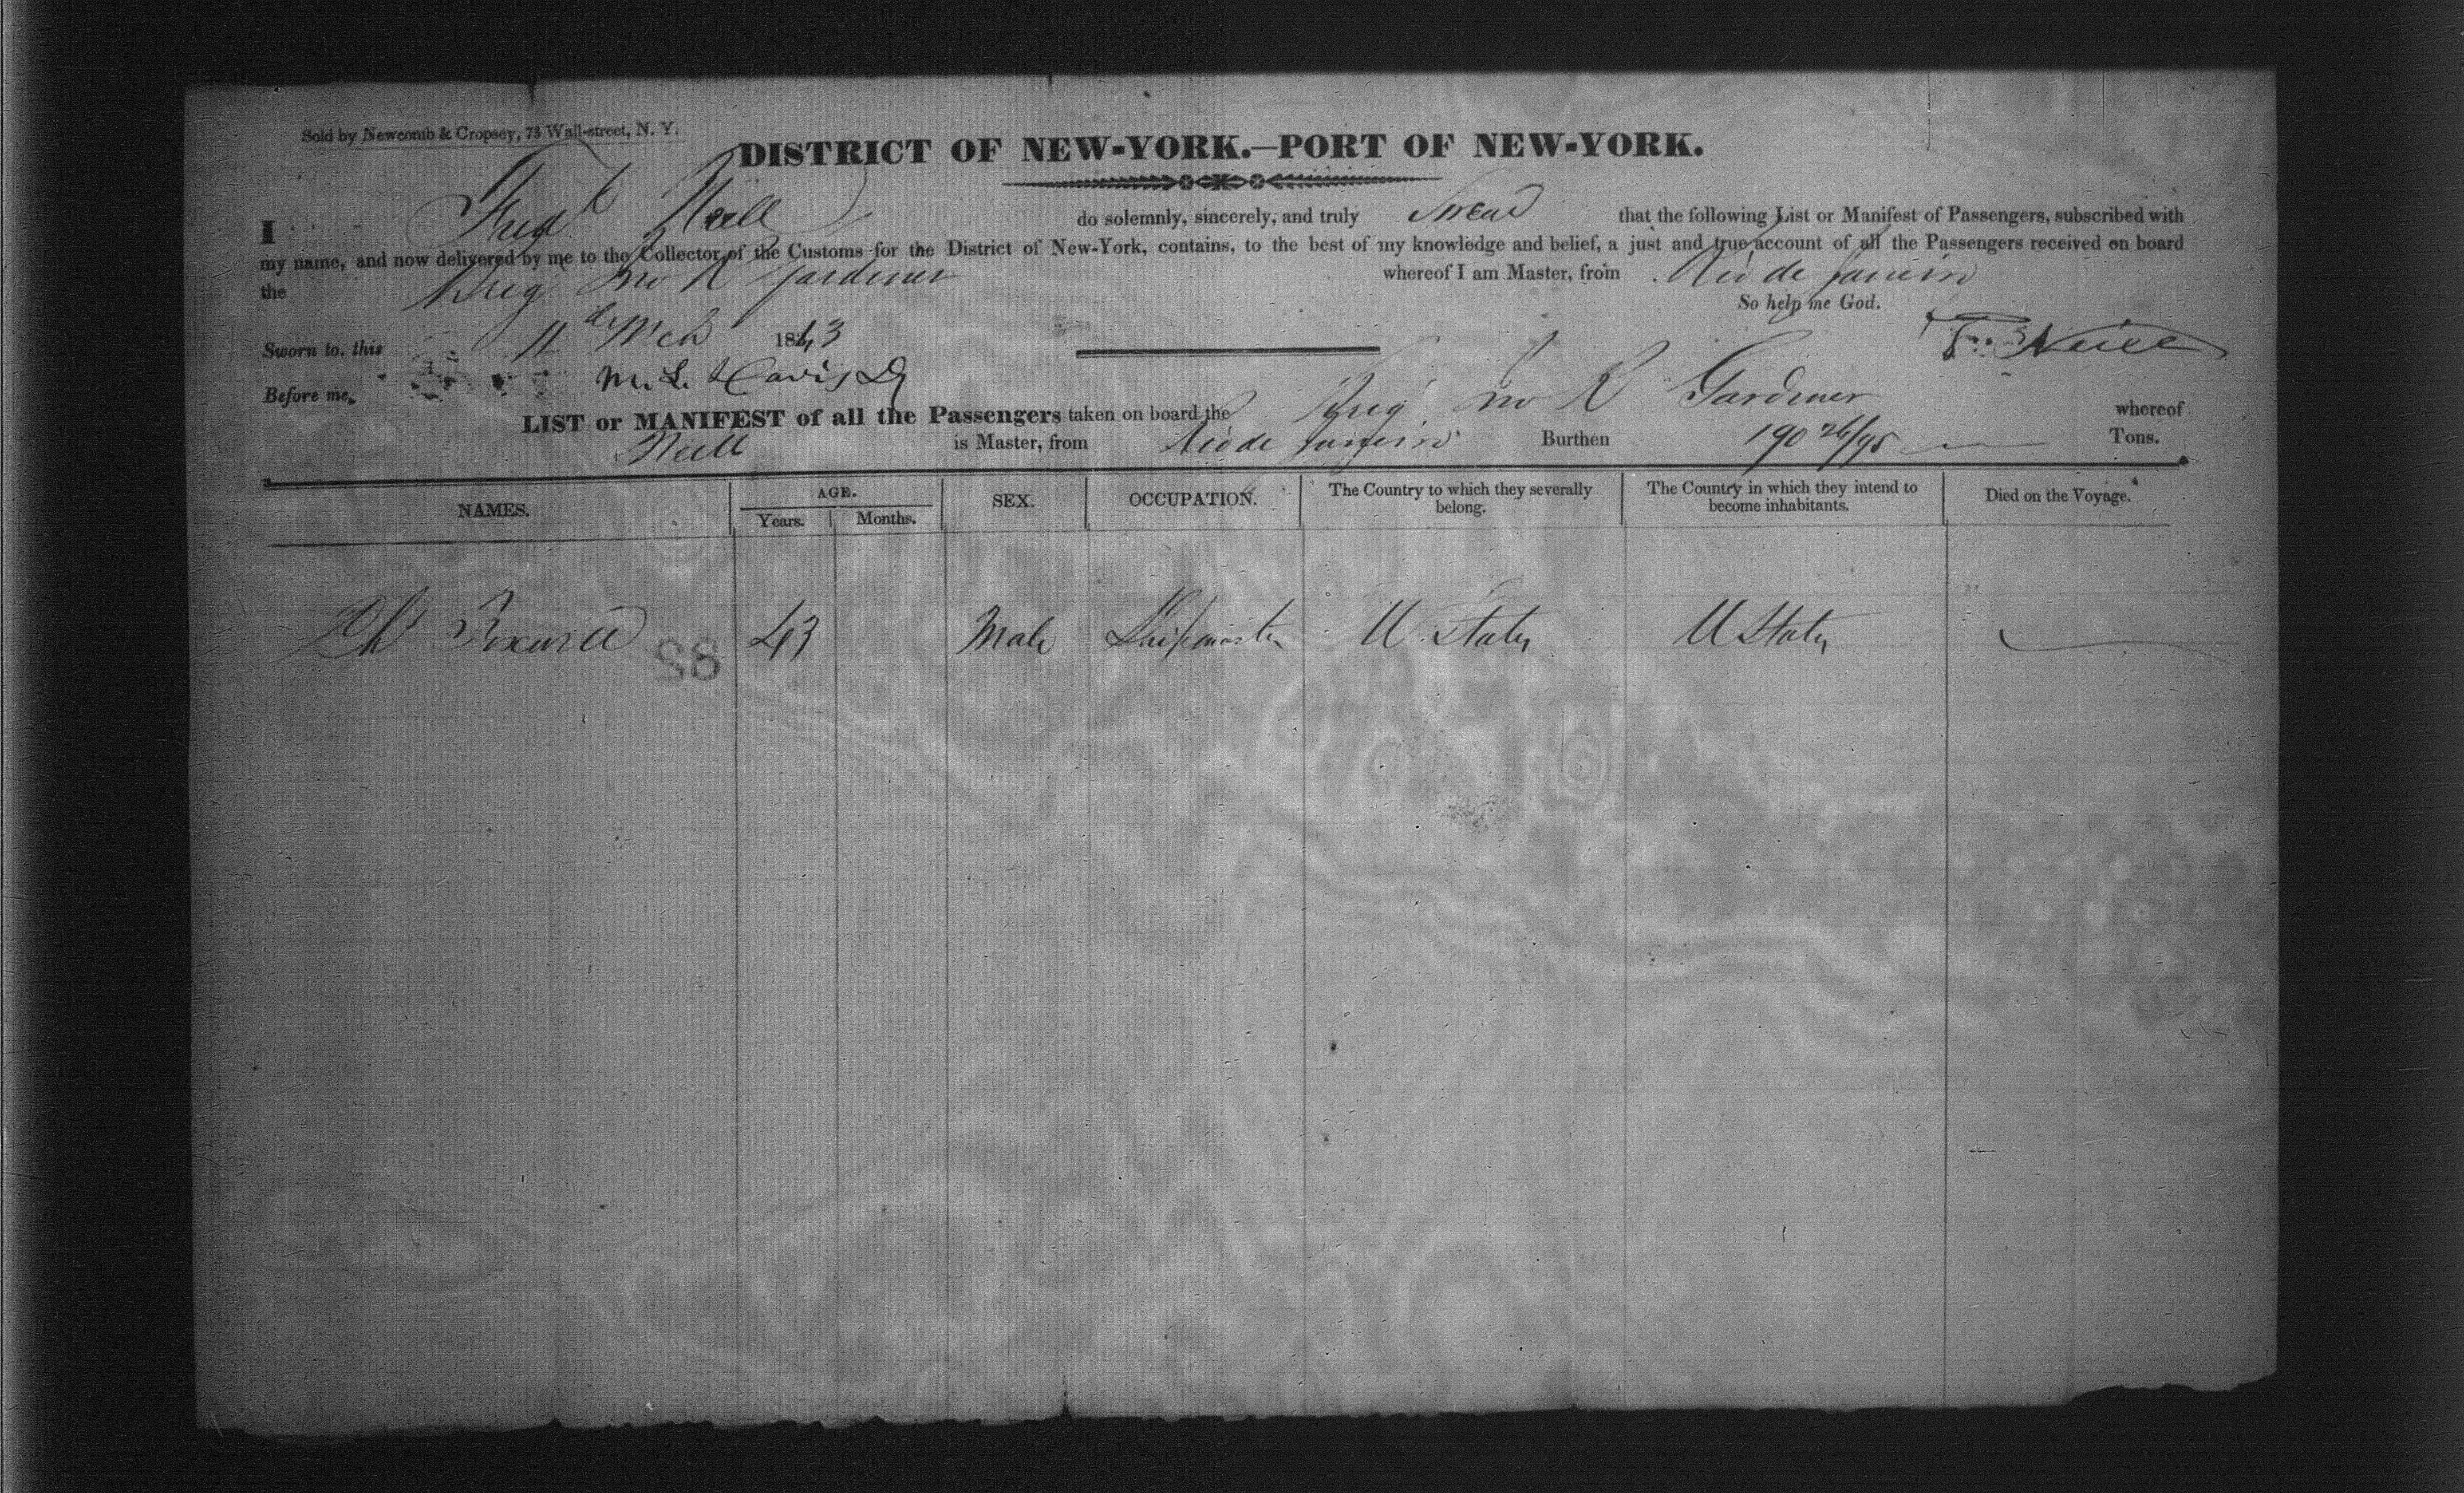 Sold by Newcomb & Cropsey, 73 Wall-street, N. Y.
DISTRICT OF NEW-YORK.—PORT OF NEW-YORK.
I Fred Neill do solemnly, sincerely, and truly Swear that the following List or Manifest of Passengers, subscribed with
my name, and now delivered by me to the Collector of the Customs for the District of New-York, contains, to the best of my knowledge and belief, a just and true account of all the Passengers received on board
the Brig R Gardener whereof I am Master, from Rio de Janeiro
So help me God.
Sworn to, this 11 Mch 1843 F. Neill
Before me, M. L. Davis
LIST or MANIFEST of all the Passengers taken on board the Brig R Gardener whereof
Neill is Master, from Rio de Janeiro Burthen 190 26/95 Tons.
NAMES. AGE. SEX. OCCUPATION. The Country to which they severally belong. The Country in which they intend to become inhabitants. Died on the Voyage.
Years. Months.
43 Male Shipmaster U. States U States
82